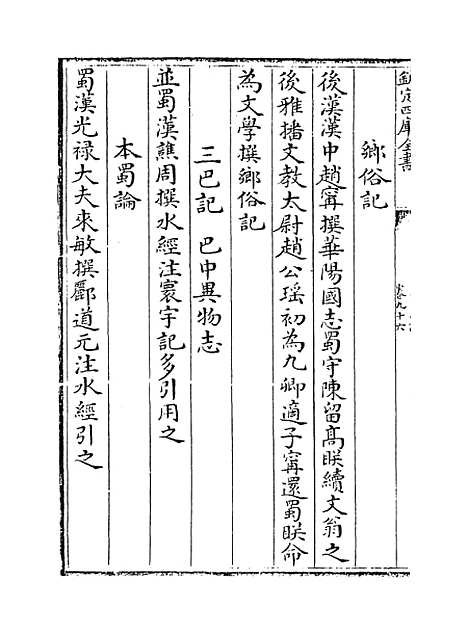 欽定四庫全書
卷九十六
鄉俗記
後漢漢中趙寗撰華陽國志蜀守陳留髙眹續文翁之
後雅播文教太尉趙公瑶初為九卿適子寗還蜀眹命
為文學撰鄉俗記
三巴記　巴中異物志
並蜀漢譙周撰水經注寰宇記多引用之
本蜀論
蜀漢光禄大夫來敏撰酈道元注水經引之